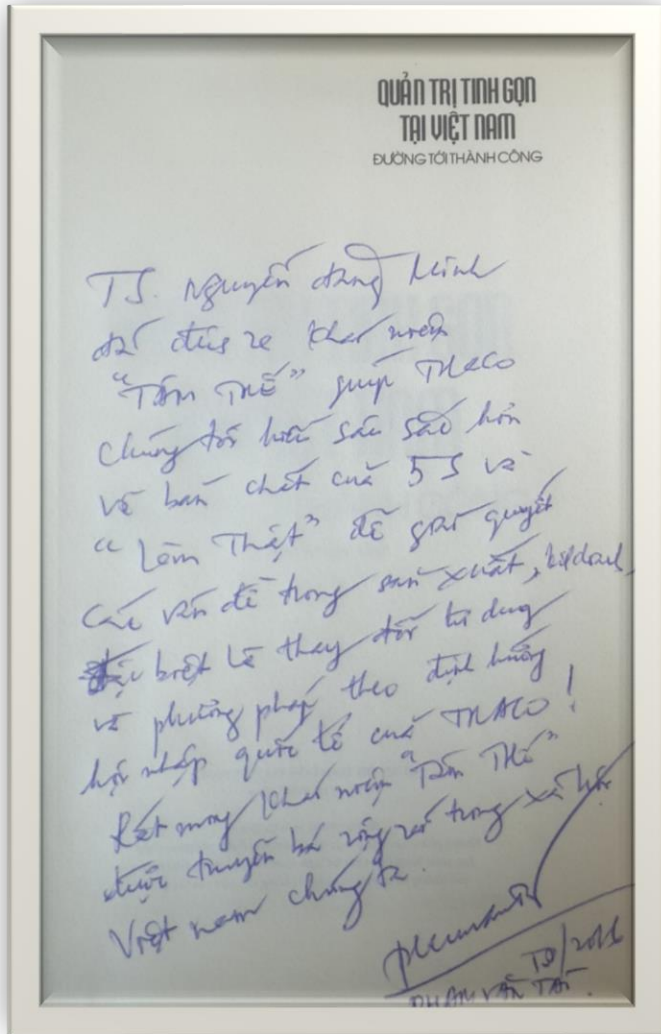 QUẢN TRỊ TINH GỌN
TẠI VIỆT NAM
ĐƯỜNG TỚI THÀNH CÔNG
TS. Nguyễn Đăng Minh
đã đưa ra khái niệm
“TÂM THẾ” giúp THACO
chúng tôi hiểu sâu sắc hơn
về bản chất của 5S và
“Làm Thật” để giải quyết
các vấn đề trong sản xuất,
đặc biệt là thay đổi tư duy
và phương pháp theo định hướng
hội nhập quốc tế của THACO!
Rất mong khái niệm “Tâm Thế”
được truyền bá rộng rãi trong xã hội
Việt nam chúng ta.
PHẠM VĂN TÀI